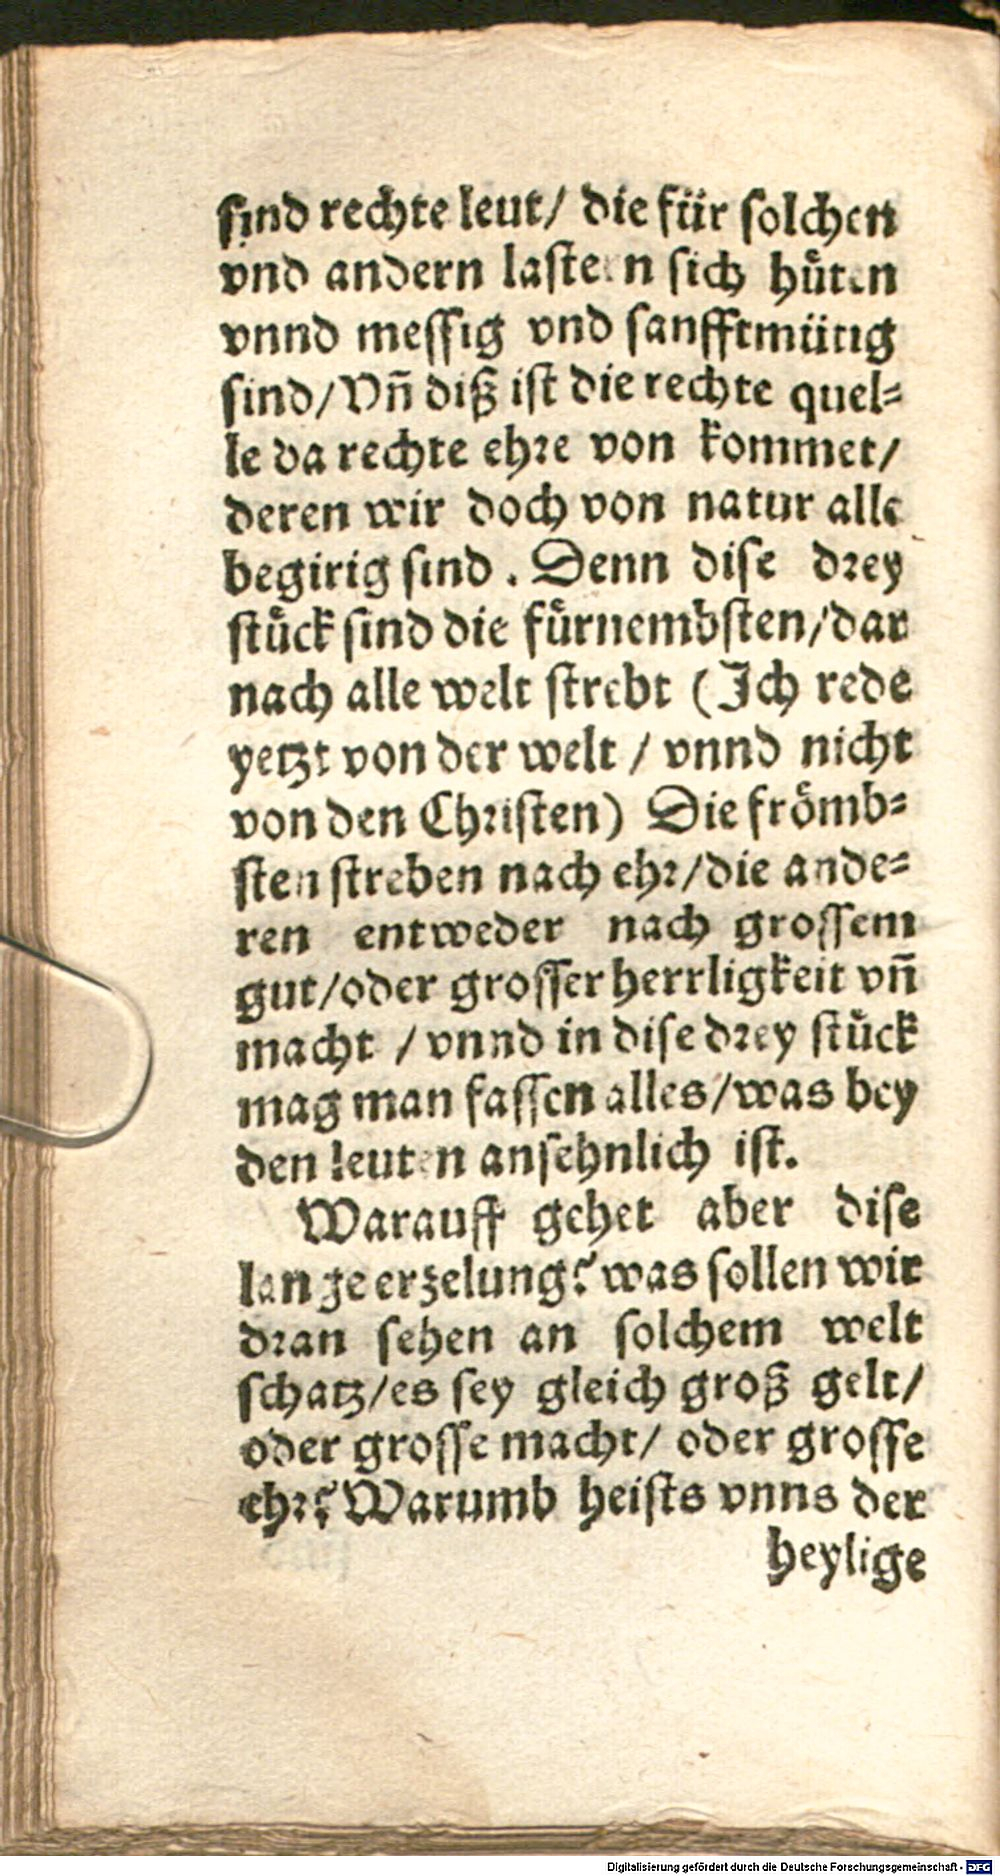 sind rechte leut/ die für solchen
vnd andern lastern sich hüten
vnnd messig vnd sanfftmütig
sind/Vñ diß ist die rechte quel-
le da rechte ehre von kommet/
deren wir doch von natur alle
begirig sind. Denn dise drey
stück sind die fürnembsten/dar
nach alle welt strebt (Ich rede
yetzt von der welt / vnnd nicht
von den Christen) Die frömb-
sten streben nach ehr/die ande-
ren entweder nach grossem
gut/oder grosser herrligkeit vñ
macht / vnnd in dise drey stück
mag man fassen alles/was bey
den leuten ansehnlich ist.
Warauff gehet aber dise
lange erzelung? was sollen wir
dran sehen an solchem welt
schatz/es sey gleich groß gelt/
oder grosse macht/ oder grosse
ehr? Warumb heists vnns der
heylige
Digitalisierung gefördert durch die Deutsche Forschungsgemeinschaft - DFG